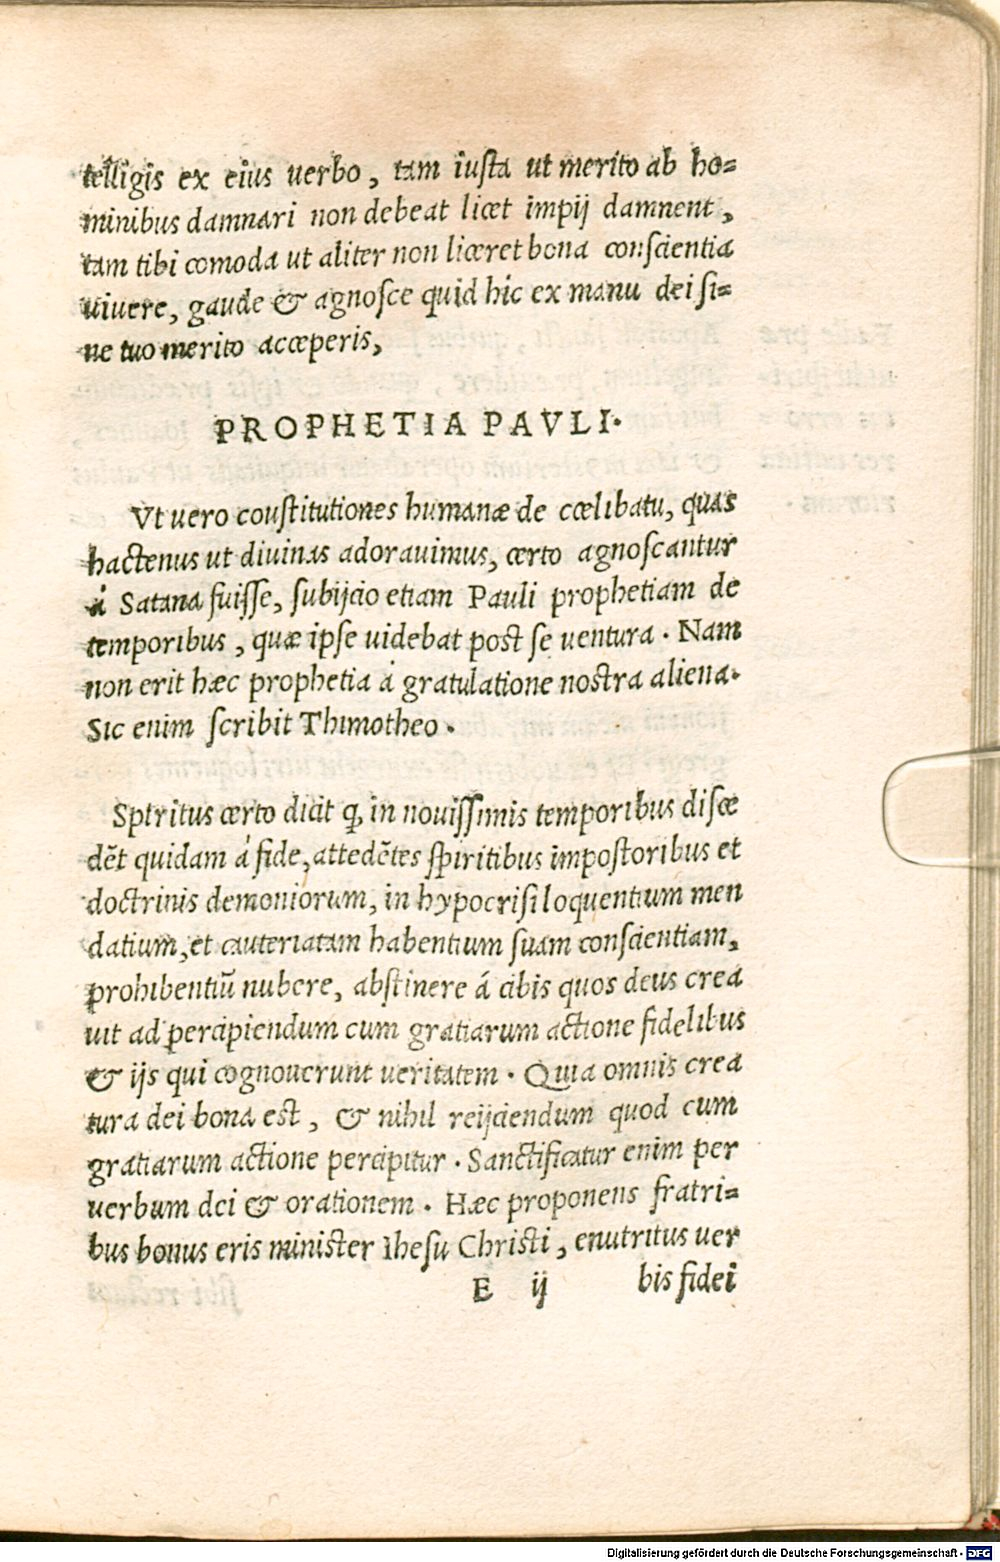 telligis ex eius uerbo, tam iusta ut merito ab ho=
minibus damnari non debeat licet impij damnent,
tam tibi comoda ut aliter non liceret bona conscientia
uiuere, gaude & agnosce quid hic ex manu dei si=
ne tuo merito acceperis,
PROPHETIA PAVLI.
Vt uero coustitutiones humanæ de cœlibatu, quas
hactenus ut diuinas adorauimus, certo agnoscantur
á Satana fuisse, subijcio etiam Pauli prophetiam de
temporibus, quæ ipse uidebat post se uentura. Nam
non erit hæc prophetia á gratulatione nostra aliena.
Sic enim scribit Thimotheo.
Spiritus certo dicit ꝙ in nouissimis temporibus disce
dẽt quidam á fide, attedẽtes spiritibus impostoribus et
doctrinis demoniorum, in hypocrisi loquentium men
datium, et cauteriatam habentium suam conscientiam,
prohibentiũ nubere, abstinere á cibis quos deus crea
uit ad percipiendum cum gratiarum actione fidelibus
& ijs qui cognouerunt ueritatem. Quia omnis crea
tura dei bona est, & nihil reijciendum quod cum
gratiarum actione percipitur. Sanctificatur enim per
uerbum dei & orationem. Hæc proponens fratri=
bus bonus eris minister Ihesu Christi, enutritus uer
E ij bis fidei
Digitalisierung gefördert durch die Deutsche Forschungsgemeinschaft - DFG